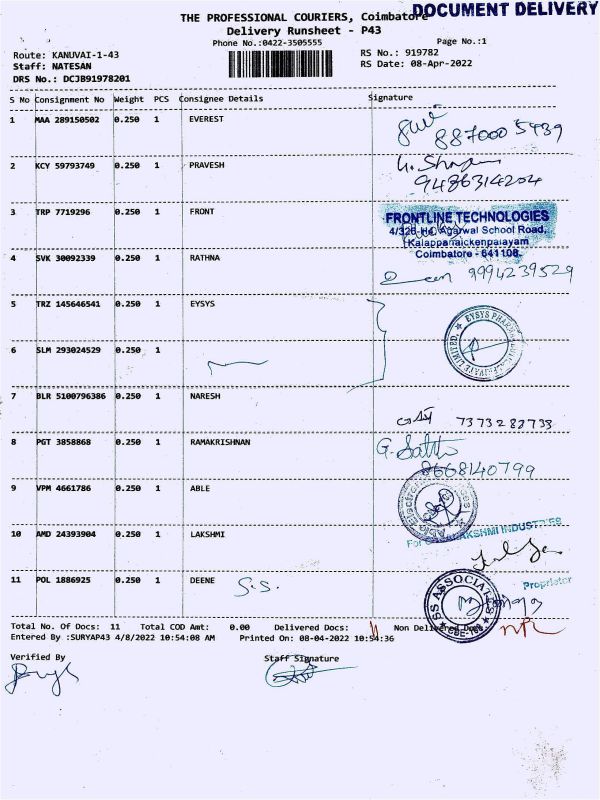 THE PROFESSIONAL COURIERS, Coimbatore
DOCUMENT DELIVERY
Delivery Runsheet - P43
Phone No.:0422-3505555
Page No.:1
Route: KANUVAI-1-43
RS No.: 919782
Staff: NATESAN
RS Date: 08-Apr-2022
DRS No.: DCJB91978201
S No Consignment No Weight PCS Consignee Details Signature
1 MAA 289150502 0.250 1 EVEREST
887000 5439
2 KCY 59793749 0.250 1 PRAVESH
9486314204
3 TRP 7719296 0.250 1 FRONT
FRONTLINE TECHNOLOGIES
4/326-H4, Agarwal School Road,
Kalappanaickenpalayam
Coimbatore - 641108.
4 SVK 30092339 0.250 1 RATHNA
9994239529
5 TRZ 145646541 0.250 1 EYSYS
EYSYS PRIVATE LIMITED.
6 SLM 293024529 0.250 1
7 BLR 5100796386 0.250 1 NARESH
7373283733
8 PGT 3858868 0.250 1 RAMAKRISHNAN
8668140799
9 VPM 4661786 0.250 1 ABLE
Able
10 AMD 24393904 0.250 1 LAKSHMI
LAKSHMI INDUSTRIES
Proprietor
11 POL 1886925 0.250 1 DEENE S.S.
SS ASSOCIATES
Total No. Of Docs: 11 Total COD Amt: 0.00 Delivered Docs: 11 Non Delivered Docs:
Entered By :SURYAP43 4/8/2022 10:54:08 AM Printed On: 08-04-2022 10:54:36
Verified By Staff Signature